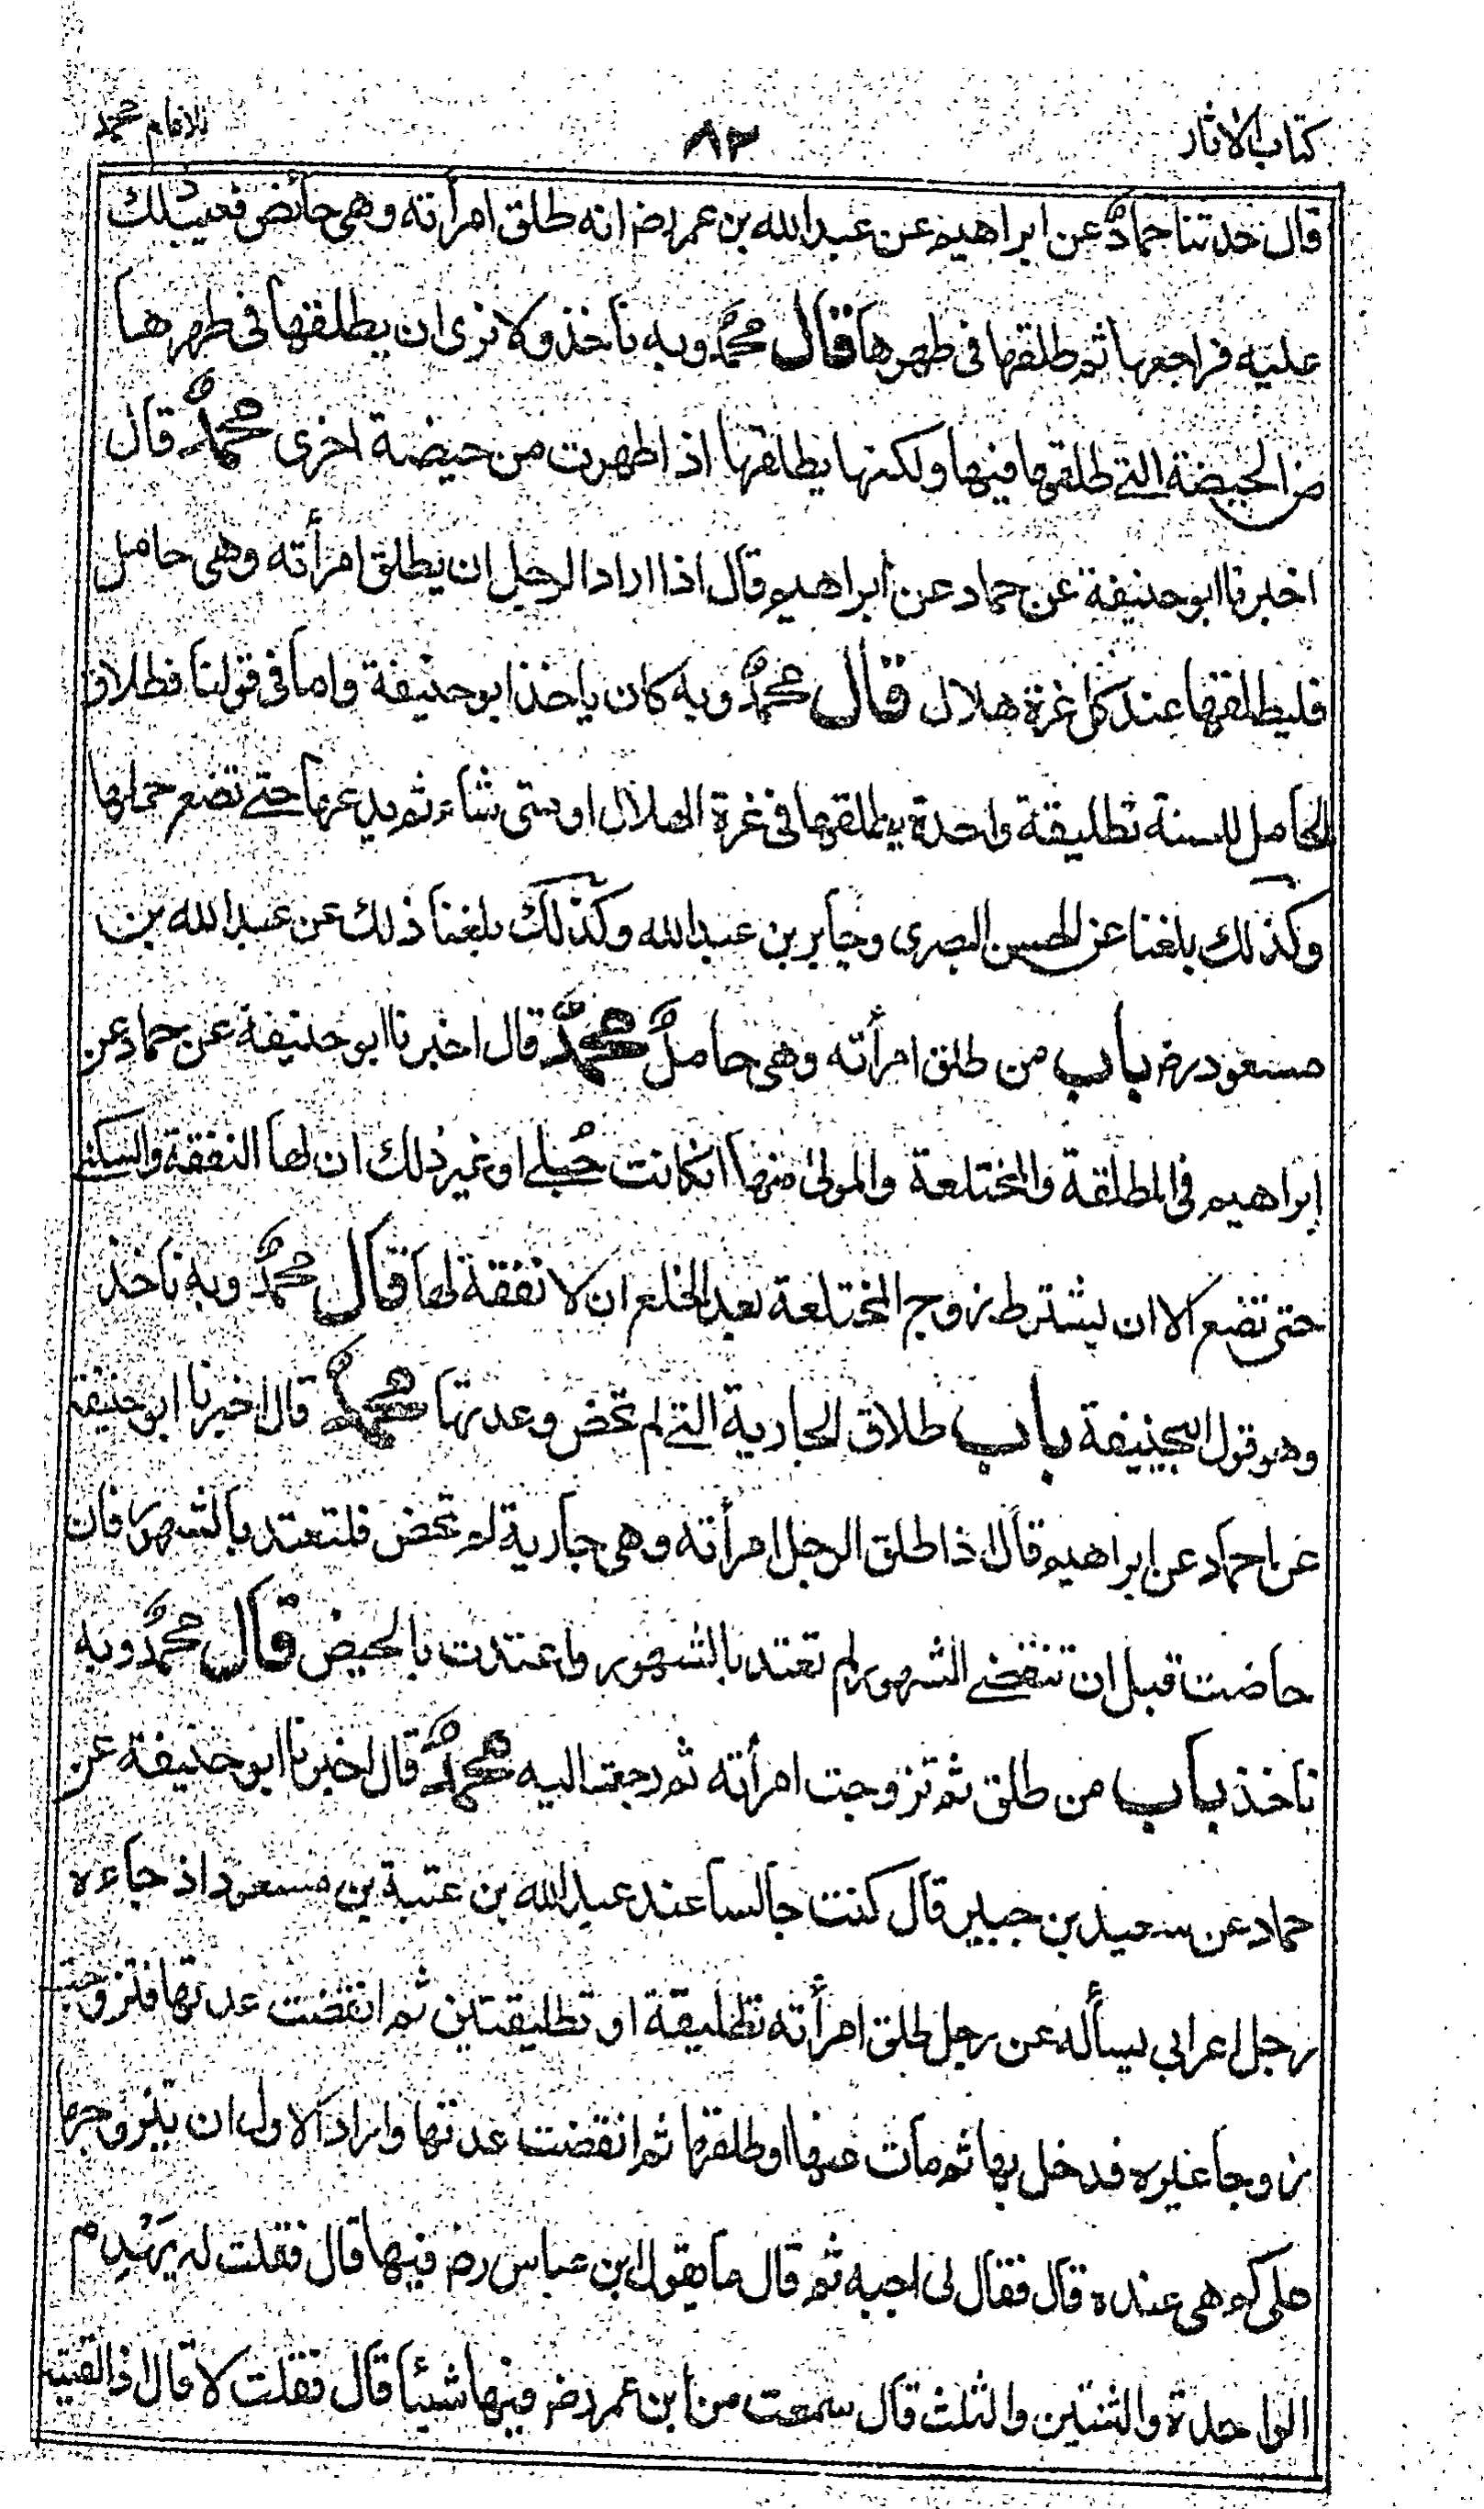 كتاب الآثار
٨٢
للامام محمد
قال حدثنا حماد عن ابراهيم عن عبدالله بن عمر رض انه طلق امرأته وهى حائض فعيب ذلك
عليه فراجعها ثم طلقها فى طهرها قال محمد وبه ناخذ ولا نرى ان يطلقها فى طهرها
من الحيضة التي طلقها فيها ولكنها يطلقها اذا طهرت من حيضة اخرى محمد قال
اخبرنا ابو حنيفة عن حماد عن ابراهيم قال اذا اراد الرجل ان يطلق امرأته وهى حامل
فليطلقها عند كل غرة هلال قال محمد وبه كان ياخذ ابو حنيفة واما فى قولنا فطلاق
الحامل للسنة تطليقة واحدة يطلقها فى غرة الهلال او متى شاء ثم يدعها حتے تضع حملها
وكذلك بلغنا عن الحسن البصرى وجابر بن عبدالله وكذلك بلغنا ذلك عن عبدالله بن
مسعود رض باب من طلق امرأته وهى حامل محمد قال اخبرنا ابو حنيفة عن حماد عن
ابراهيم فى المطلقة والمختلعة والمولى منها انكانت حبلے او غير ذلك ان لها النفقة والسكنے
حتى تضع الا ان يشترط زوج المختلعة بعد الخلع ان لا نفقة لها قال محمد وبه ناخذ
وهو قول ابيحنيفة باب طلاق الجارية التے لم تحض وعدتها محمد قال اخبرنا ابو حنيفة
عن حماد عن ابراهيم قال اذا طلق الرجل امرأته وهى جارية لم تحض فلتعتد بالشهور فان
حاضت قبل ان تنقضے الشهور لم تعتد بالشهور واعتدت بالحيض قال محمد وبه
ناخذ باب من طلق ثم تزوجت امرأته ثم رجعت اليه محمد قال اخبرنا ابو حنيفة عن
حماد عن سعيد بن جبير قال كنت جالسا عند عبدالله بن عتبة بن مسعود اذ جاءه
رجل اعرابى يسأله عن رجل طلق امرأته تطليقة او تطليقتين ثم انقضت عدتها فتزوجت
زوجا غيره فدخل بها ثم مات عنها او طلقها ثم انقضت عدتها واراد الاول ان يتزوجها
على كم هى عنده قال فقال لى اجبه ثم قال ما يقول ابن عباس رض فيها قال فقلت له يهدم
الواحدة والثنتين والثلث قال سمعت من ابن عمر رض فيها شيئا قال فقلت لا قال اذا لقيته